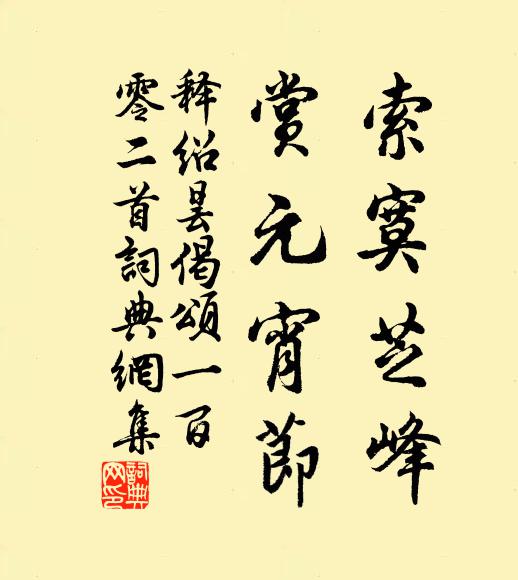 索寞芝峰
賞元宵節
释紹曇偈頌一百
零二首詞典網集
詞典網印